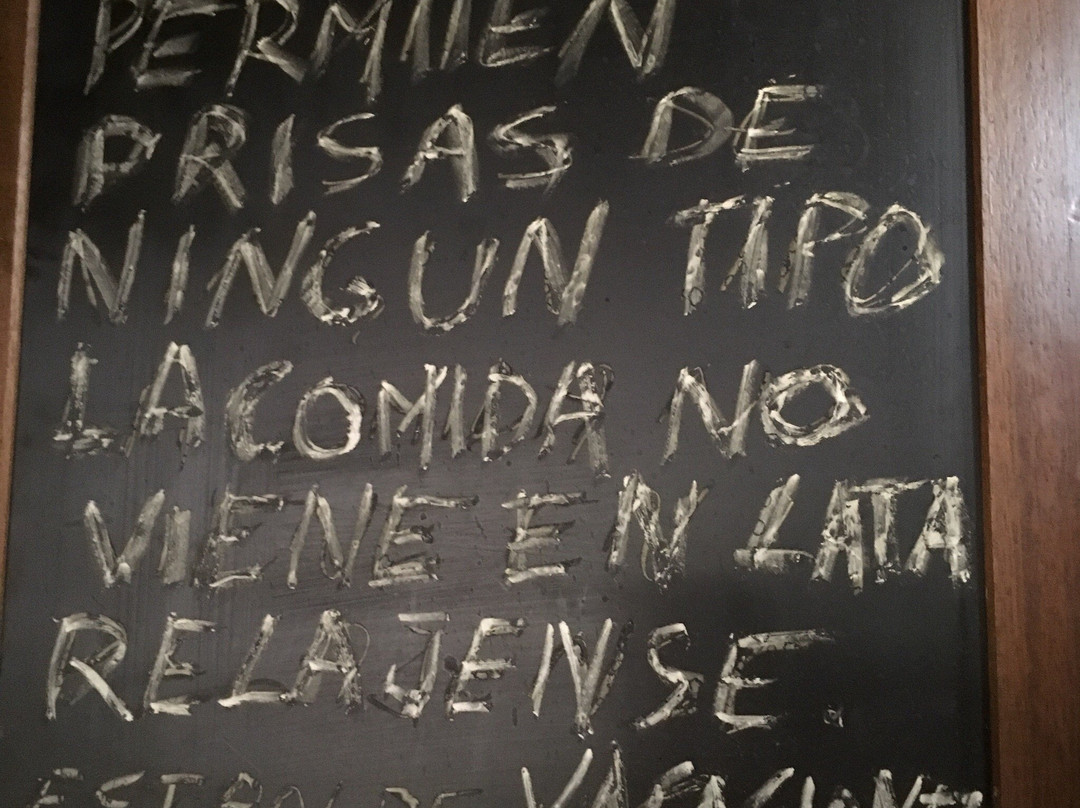 PERMITEN
PRISAS DE
NINGUN TIPO
LA COMIDA NO
VIENE EN LATA
RELAJENSE.
DE VACACIONES